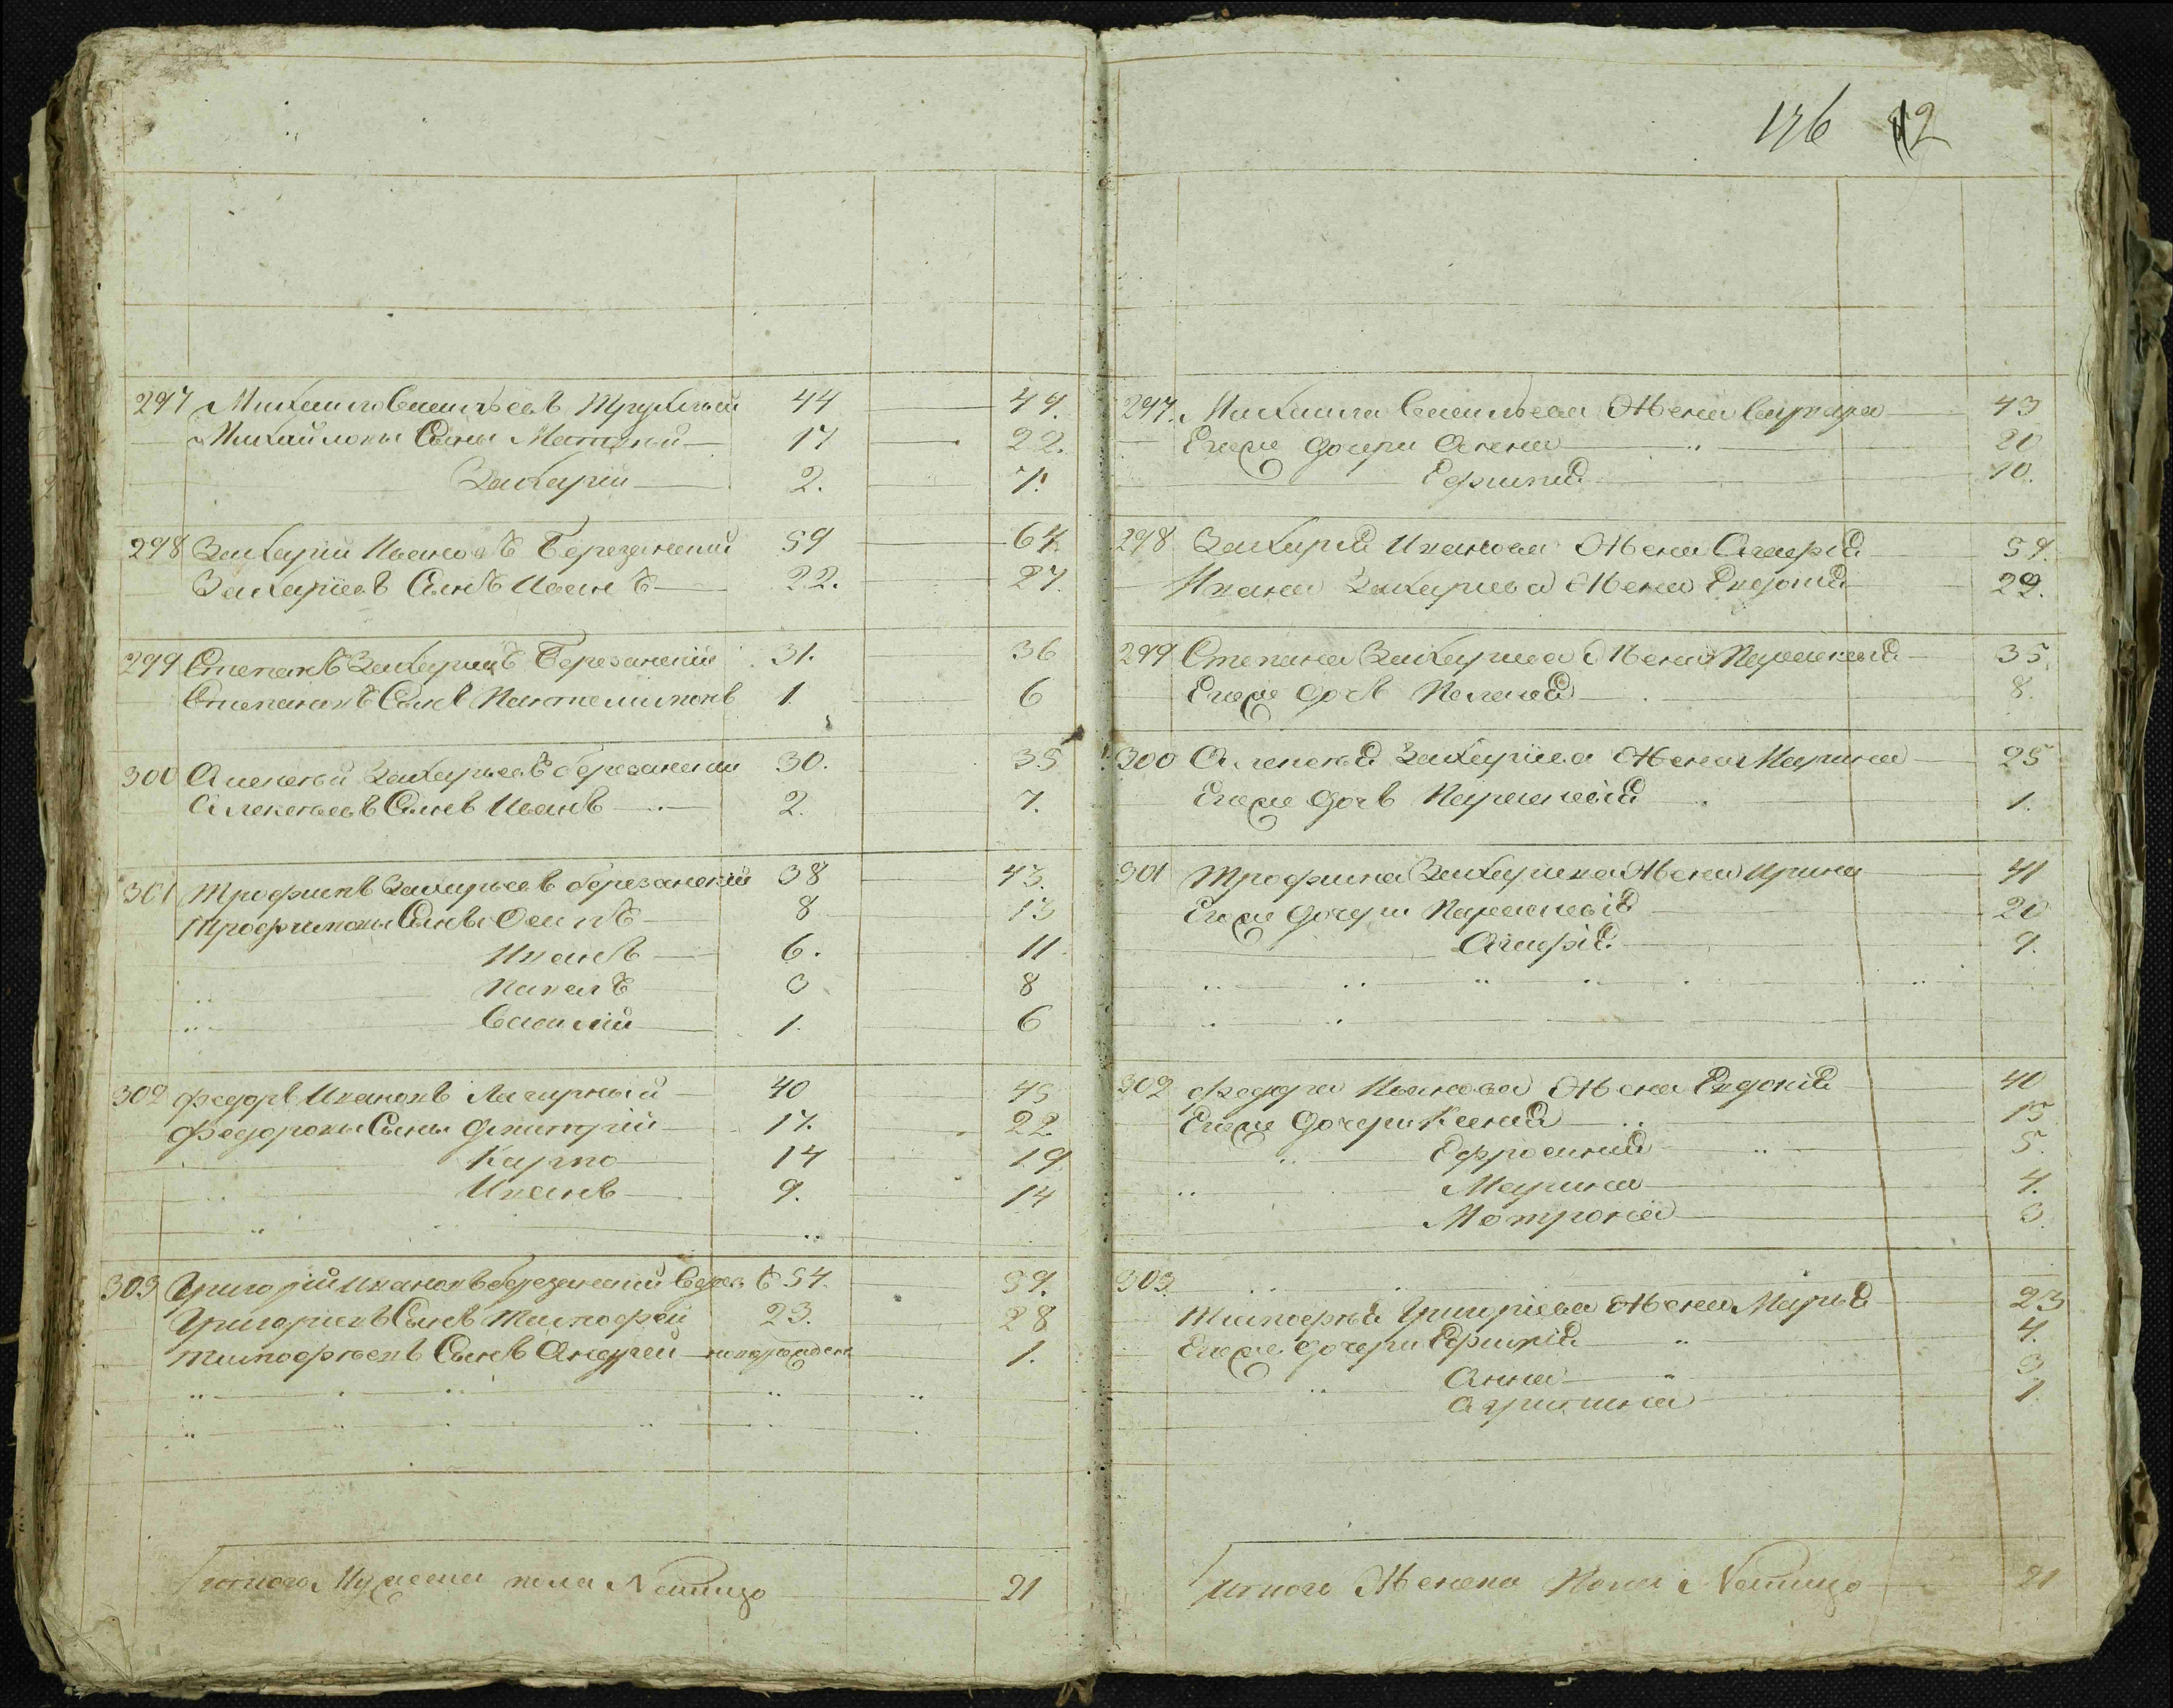 136 12
297 Михаило Васильевъ 44 49.
Михайловы Сыны Матвѣй 17 22.
Захарій 2. 7.
298 Захарій Ивановъ Березанский 59 64.
Захаріевъ Сынъ Иванъ 22. 27.
299 Степанъ Захариевъ Березанский 31. 36
Степановъ Сынъ Пантелимонъ 1. 6
300 Алексѣй Захарьевъ березанский 30. 35
Алексѣевъ Сынъ Иванъ 2. 7.
301 Трофимъ Захарьевъ березанский 38 43.
Трофимовы Сыны Осипъ 8 13
Иванъ 6. 11.
Павелъ 3 8
Василий 1. 6
302 Федоръ Ивановъ 40 45
Федоровы Сыны Дмитрій 17. 22.
Карпо 14 19
Иванъ 9. 14
303 Григорій Ивановъ березанский 54. 59.
Григориевъ Сынъ Тимофей 23. 28
Тимофѣевъ Сынъ Андрей новорожден 1.
Итого Мужеска пола Налицо 21
297. Михаила Васильева Жена Варвара 43
Егоже дочери Алена 20
Ефимия 10.
298 Захария Иванова Жена Агафія 59.
Ивана Захариева Жена Евдокия 22.
299 Степана Захариева Жена Парасковия 35.
Егоже дочь Пелагея 8.
300 Алексея Захариева Жена Марина 25
Егоже дочь Парасковія 1.
301 Трофима Захариева Жена Ирина 41
Егоже дочери Парасковія 20
Агафія 9.
302 Федора Иванова Жена Евдокия 40
Егоже дочери Ксения 15
Ефросиния 5.
Марина 4.
Матрона 3.
303.
Тимофея Григориева Жена Марья 23
Егоже дочери Ефимия 4.
Анна 3
Агрипина 1.
Итого Женска Пола Налицо 21